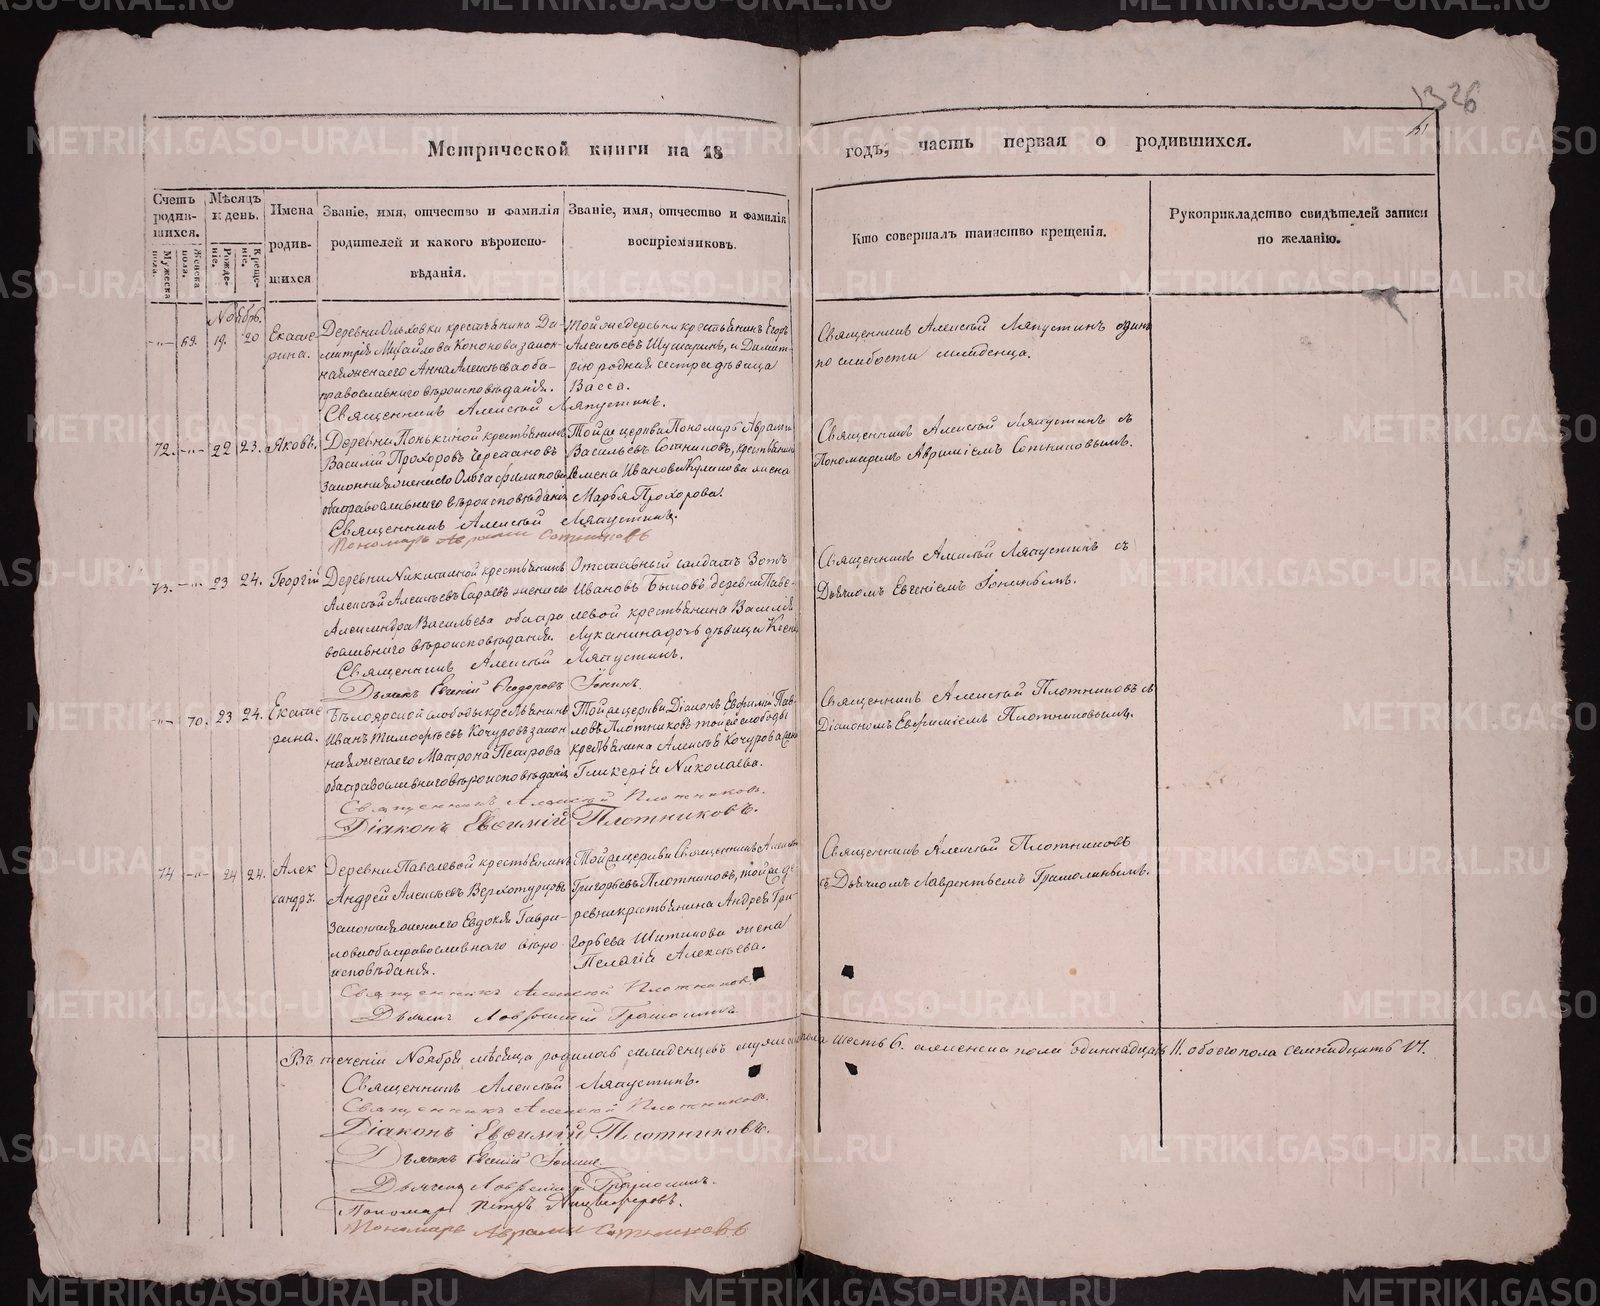 Метрической книги на 18 годъ, часть первая о родившихся.
Счетъ родив-шихся.
Мужеска пола.
Женска пола.
Мѣсяцъ и день.
Рожде-ніе.
Креще-ніе.
Имена родив-шихся
Званіе, имя, отчество и фамилія
родителей и какого вѣроиспо-
вѣданія.
Званіе, имя, отчество и фамилія
воспріемниковъ.
Кто совершалъ таинство крещенія.
Рукоприкладство свидѣтелей записи
по желанію.
326
Ноябрь.
69. 19. 20 Екате-
рина.
Деревни Ольховки крестьянина Ди-
митрія Михайлова Кононова закон-
ная жена его Анна Алексѣева оба
православнаго вѣроисповѣданія.
Той же деревни крестьянинъ Егоръ
Алексѣевъ Шушаринъ, и Димит-
рію родная сестра дѣвица
Васса.
Священникъ Алексѣй Ляпустинъ.
Священникъ Алексѣй Ляпустинъ одинъ
по слабости младенца.
72. 22 23. Яковъ.
Деревни крестьянинъ
Василій Прохоровъ
законная жена его Ольга Филипова
оба православнаго вѣроисповѣданія
Тойже церкви Пономарь Аврамій
Васильевъ Сотниковъ, крестьянина
Семена Иванова Куликова жена
Марья Прохорова.
Священникъ Алексѣй Ляпустинъ.
Пономарь Аврамій Сотниковъ
Священникъ Алексѣй Ляпустинъ съ
Пономаремъ Авраміемъ Сотниковымъ.
73. 23 24. Георгій
Деревни Никитиной крестьянинъ
Алексѣй Алексѣевъ Сараевъ жена его
Александра Васильева оба пра-
вославнаго вѣроисповѣданія.
Отставный солдатъ Зотъ
Ивановъ Быковъ деревни Паве-
левой крестьянина Василія
Луканина дочь дѣвица Ксенія
Священникъ Алексѣй Ляпустинъ.
Дьячекъ Евгеній Ѳеодоровъ Іонинъ.
Священникъ Алексѣй Ляпустинъ съ
Дьячкомъ Евгеніемъ Іонинымъ.
70. 23 24. Екате-
рина.
Бѣлоярской слободы крестьянинъ
Иванъ Тимофѣевъ Кочуровъ закон-
ная жена его Матрона Петрова
оба православнаго вѣроисповѣданія
Тойже церкви Діаконъ Евфимій Пав-
ловъ Плотниковъ той же слободы
крестьянина Алексѣя Кочурова жена
Гликерія Николаева.
Священникъ Алексѣй Плотниковъ.
Діаконъ Евѳимій Плотниковъ.
Священникъ Алексѣй Плотниковъ съ
Діакономъ Евфиміемъ Плотниковымъ.
74 24 24. Алек-
сандръ.
Деревни Павелевой крестьянинъ
Андрей Алексѣевъ Верхотурцовъ
законная жена его Евдокія Гаври-
лова оба православнаго вѣро-
исповѣданія.
Тойже церкви Священникъ Алексѣй
Григорьевъ Плотниковъ, тойже де-
ревни крестьянина Андрея Гри-
горьева Шитикова жена
Пелагія Алексѣева.
Священникъ Алексѣй Плотниковъ
Дьячекъ Лаврентій Грамолинъ
Священникъ Алексѣй Плотниковъ
съ Дьячкомъ Лаврентьемъ Грамолинымъ.
Въ теченіи Ноября мѣсяца родилось младенцевъ мужеска пола шесть 6. а женска пола одиннадцать 11. обоего пола семнадцать 17.
Священникъ Алексѣй Ляпустинъ.
Священникъ Алексѣй Плотниковъ.
Діаконъ Евѳимій Плотниковъ.
Дьячекъ Евгеній Іонинъ
Дьячекъ Лаврентій Грамолинъ.
Пономарь Петръ
Пономарь Аврамій Сотниковъ
METRIKI.GASO-URAL.RU